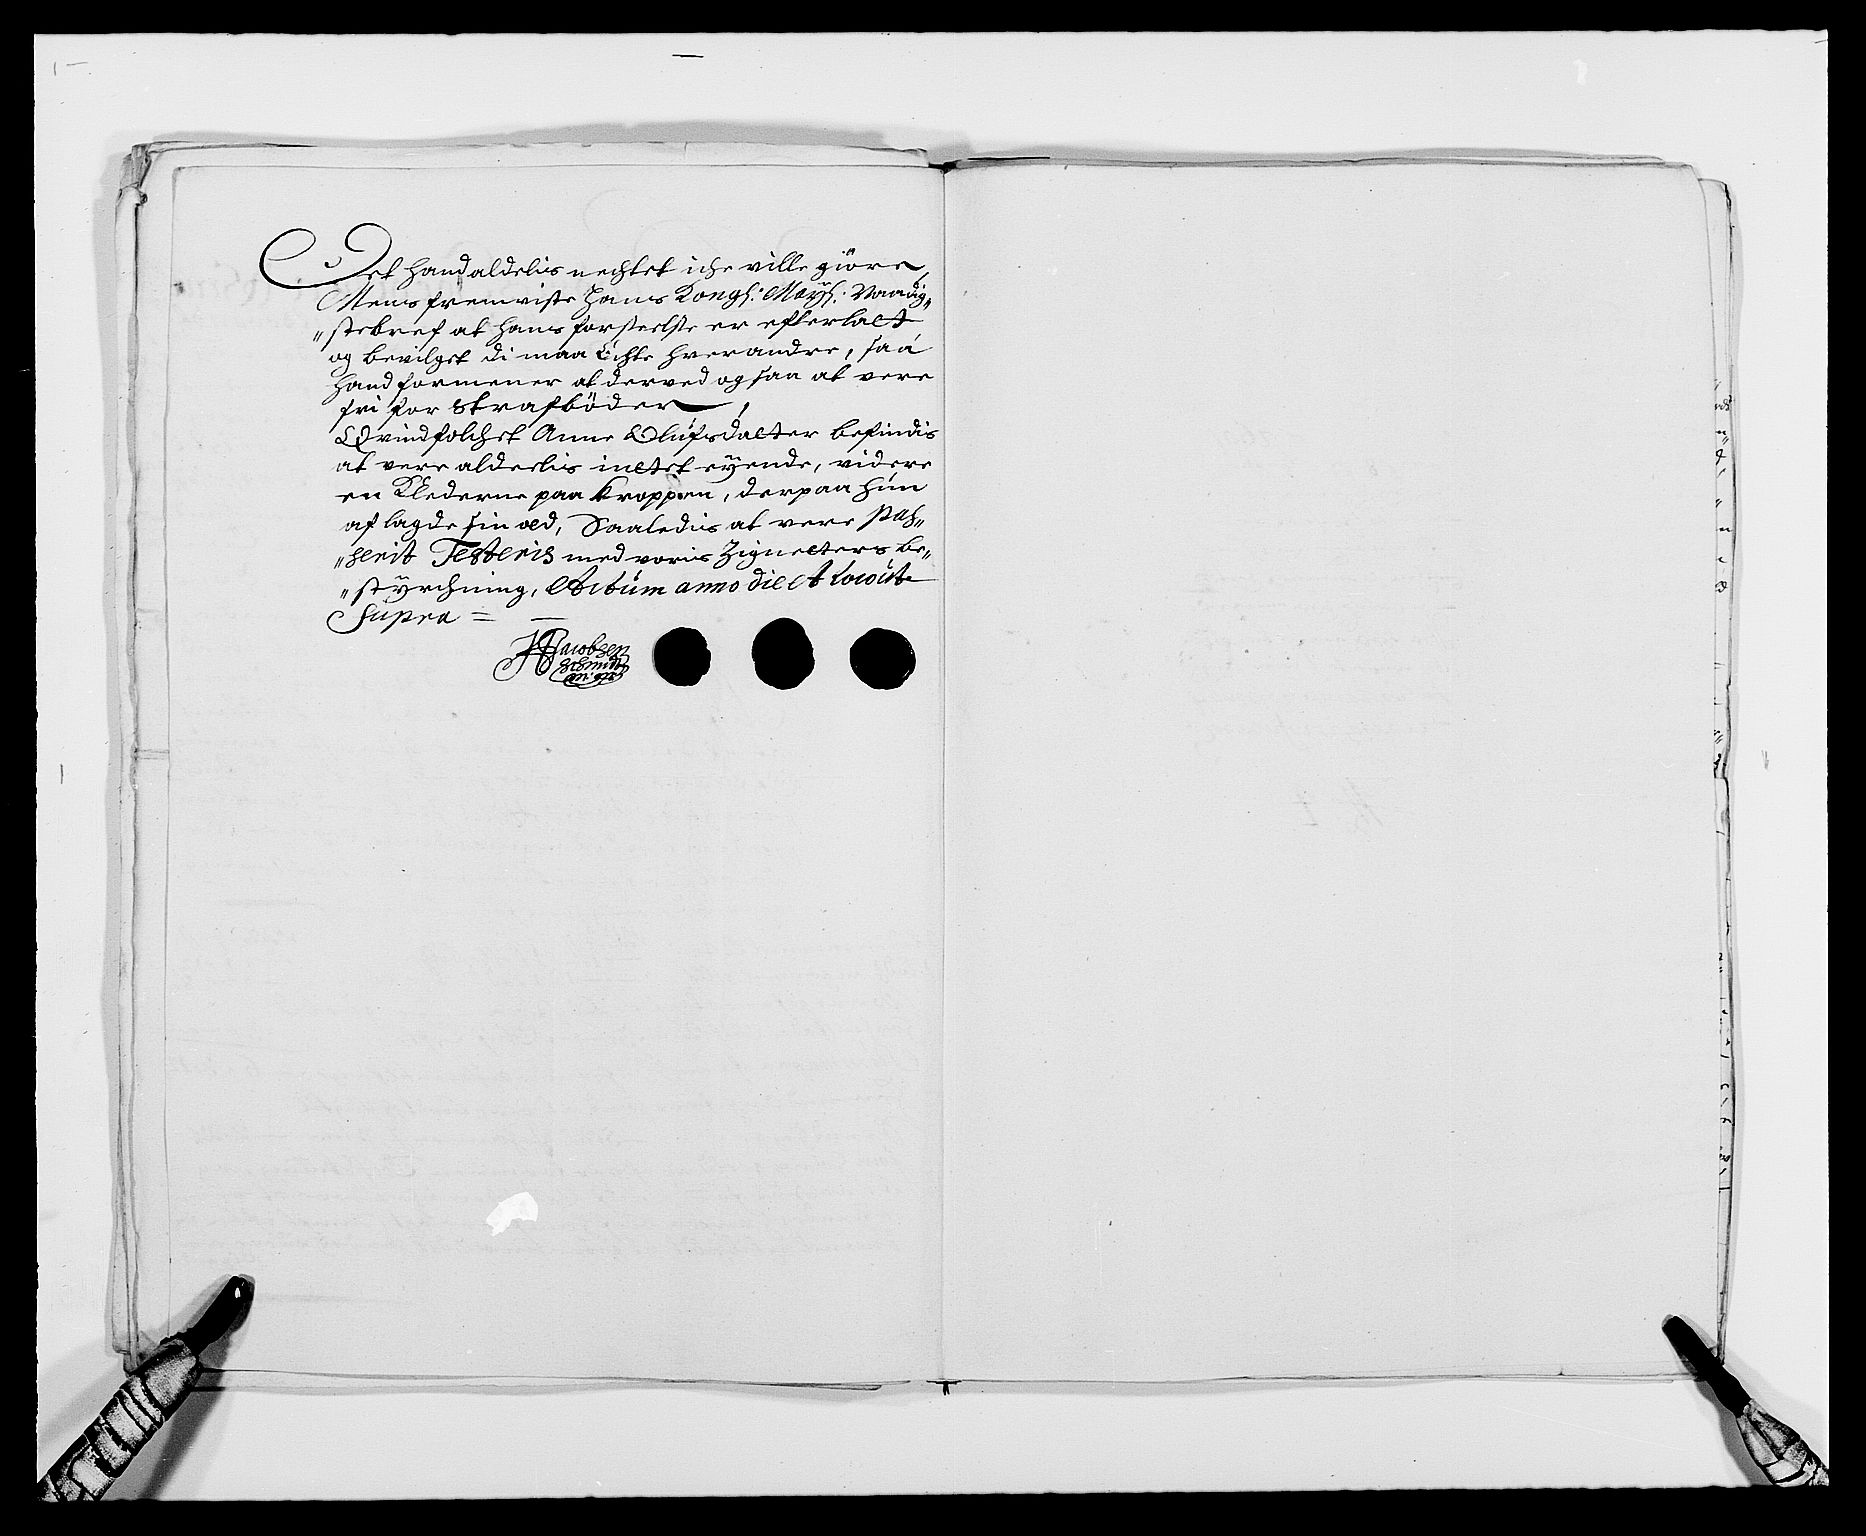 Det hand aldelis nechtet iche ville giöre,
Mens fremviste Hans Kongl: Mayts: Naadig-
ste bref at hans forseelse er efterladt
og bevilget di maa Echte hverandre, saa
hand formener at derved og saa at vere
fri for Strafböder,
Qvindfolchet Anne Olufsdatter befindis
at vere aldeelis intet eyende, videre
en Klederne paa kroppen, derpaa hun
aflagde sin æd, Saaledis at vere Pas-
serit Testeris med voris Zignetters be-
styrchning, Actum anno die et loco ut
Supra =
Jacobsen
Schmidt